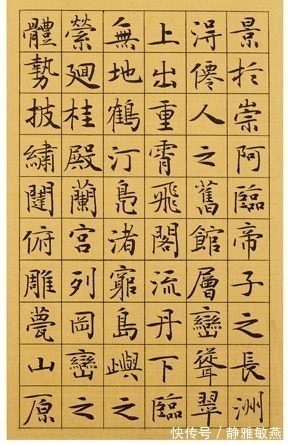 景扵崇阿臨帝子之長洲
淂僊人之舊館層巒聳翠
上出重霄飛閣流丹下臨
無地鶴汀鳧渚窮島嶼之
縈廻桂殿蘭宮列岡巒之
體勢披繡闥俯雕甍山原
快传号/静雅敏燕